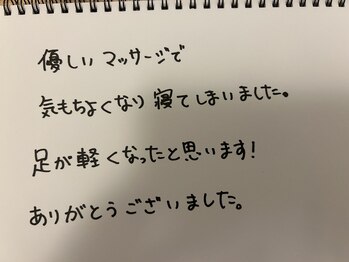 優しいマッサージで
気もちよくなり寝てしまいました。
足が軽くなったと思います!
ありがとうございました。